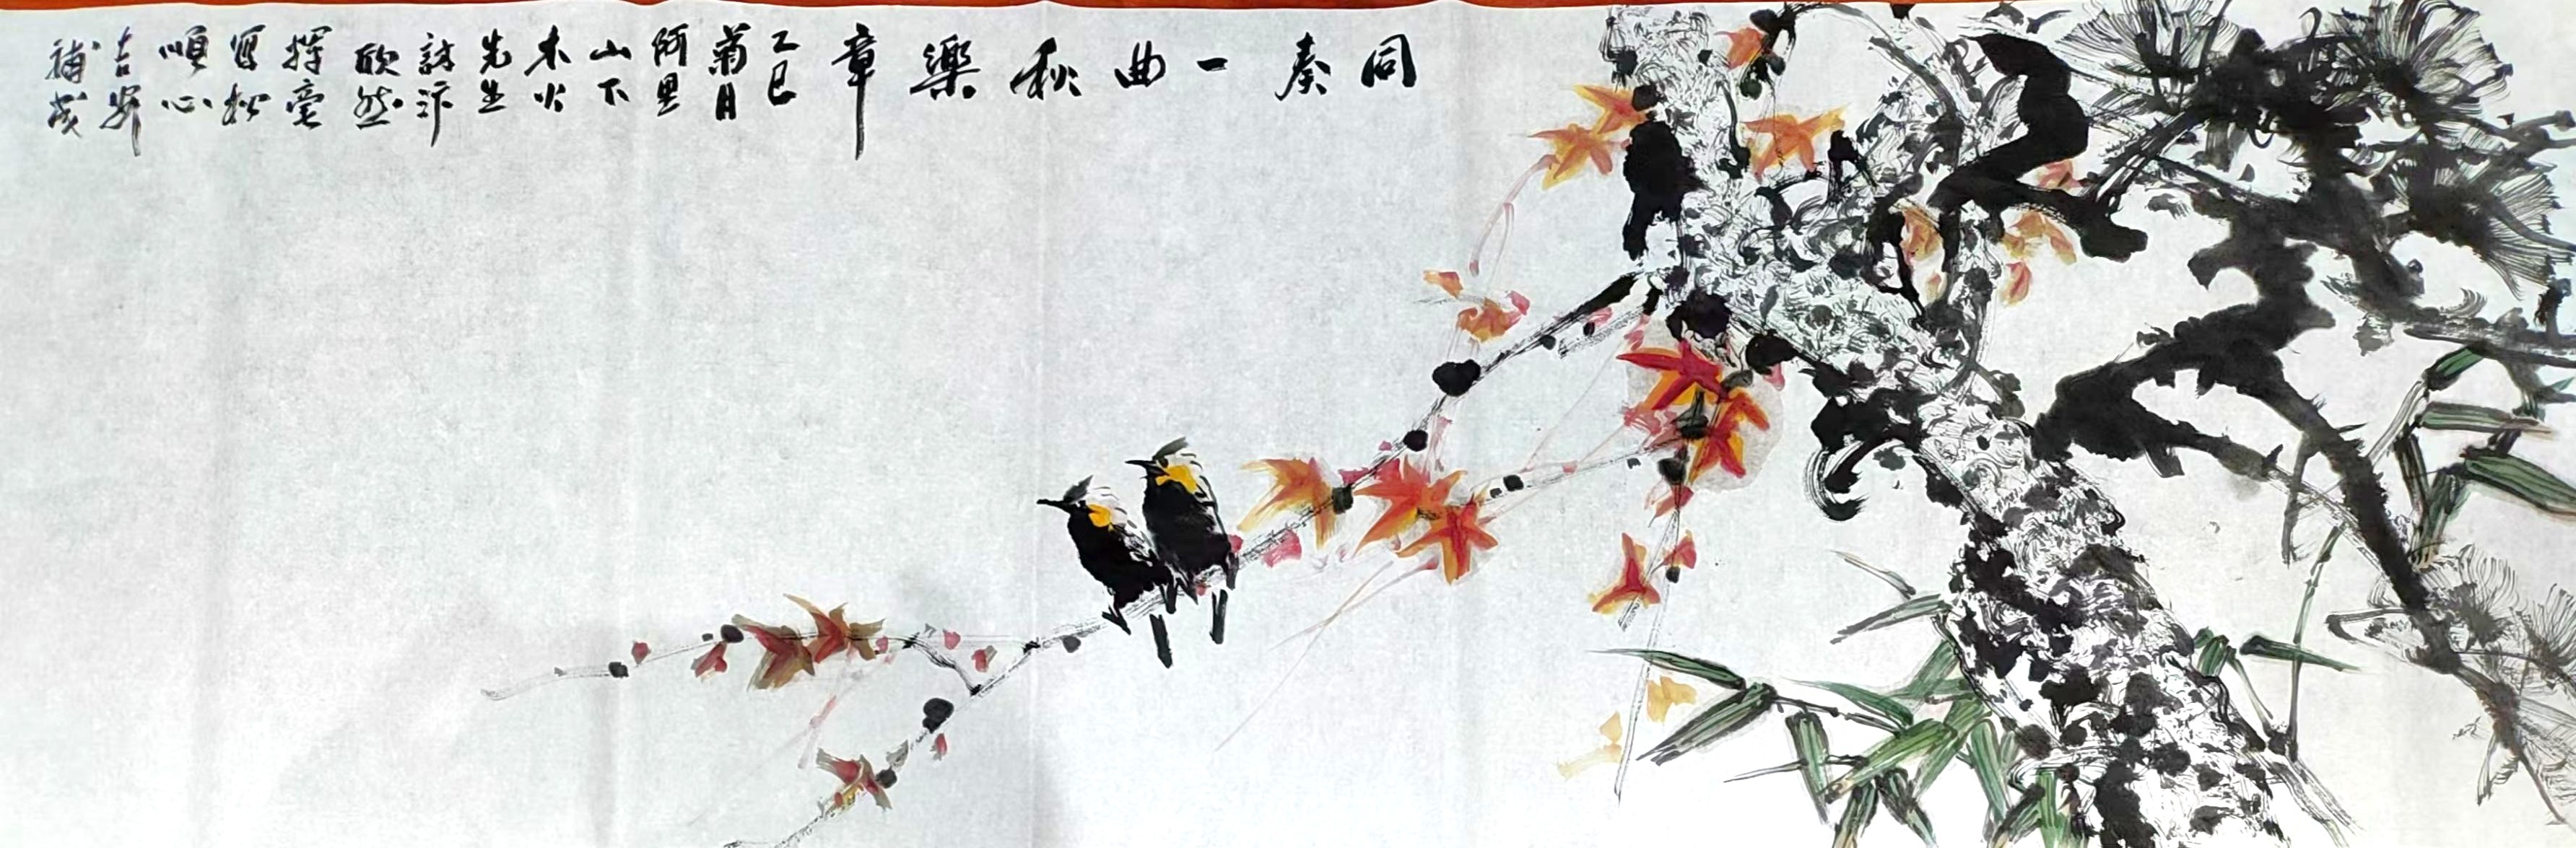 同奏一曲秋樂章
乙巳
菊月
阿里
山下
木火
先生
訪汴
欣然
揮毫
寫松
順心
吉安
補